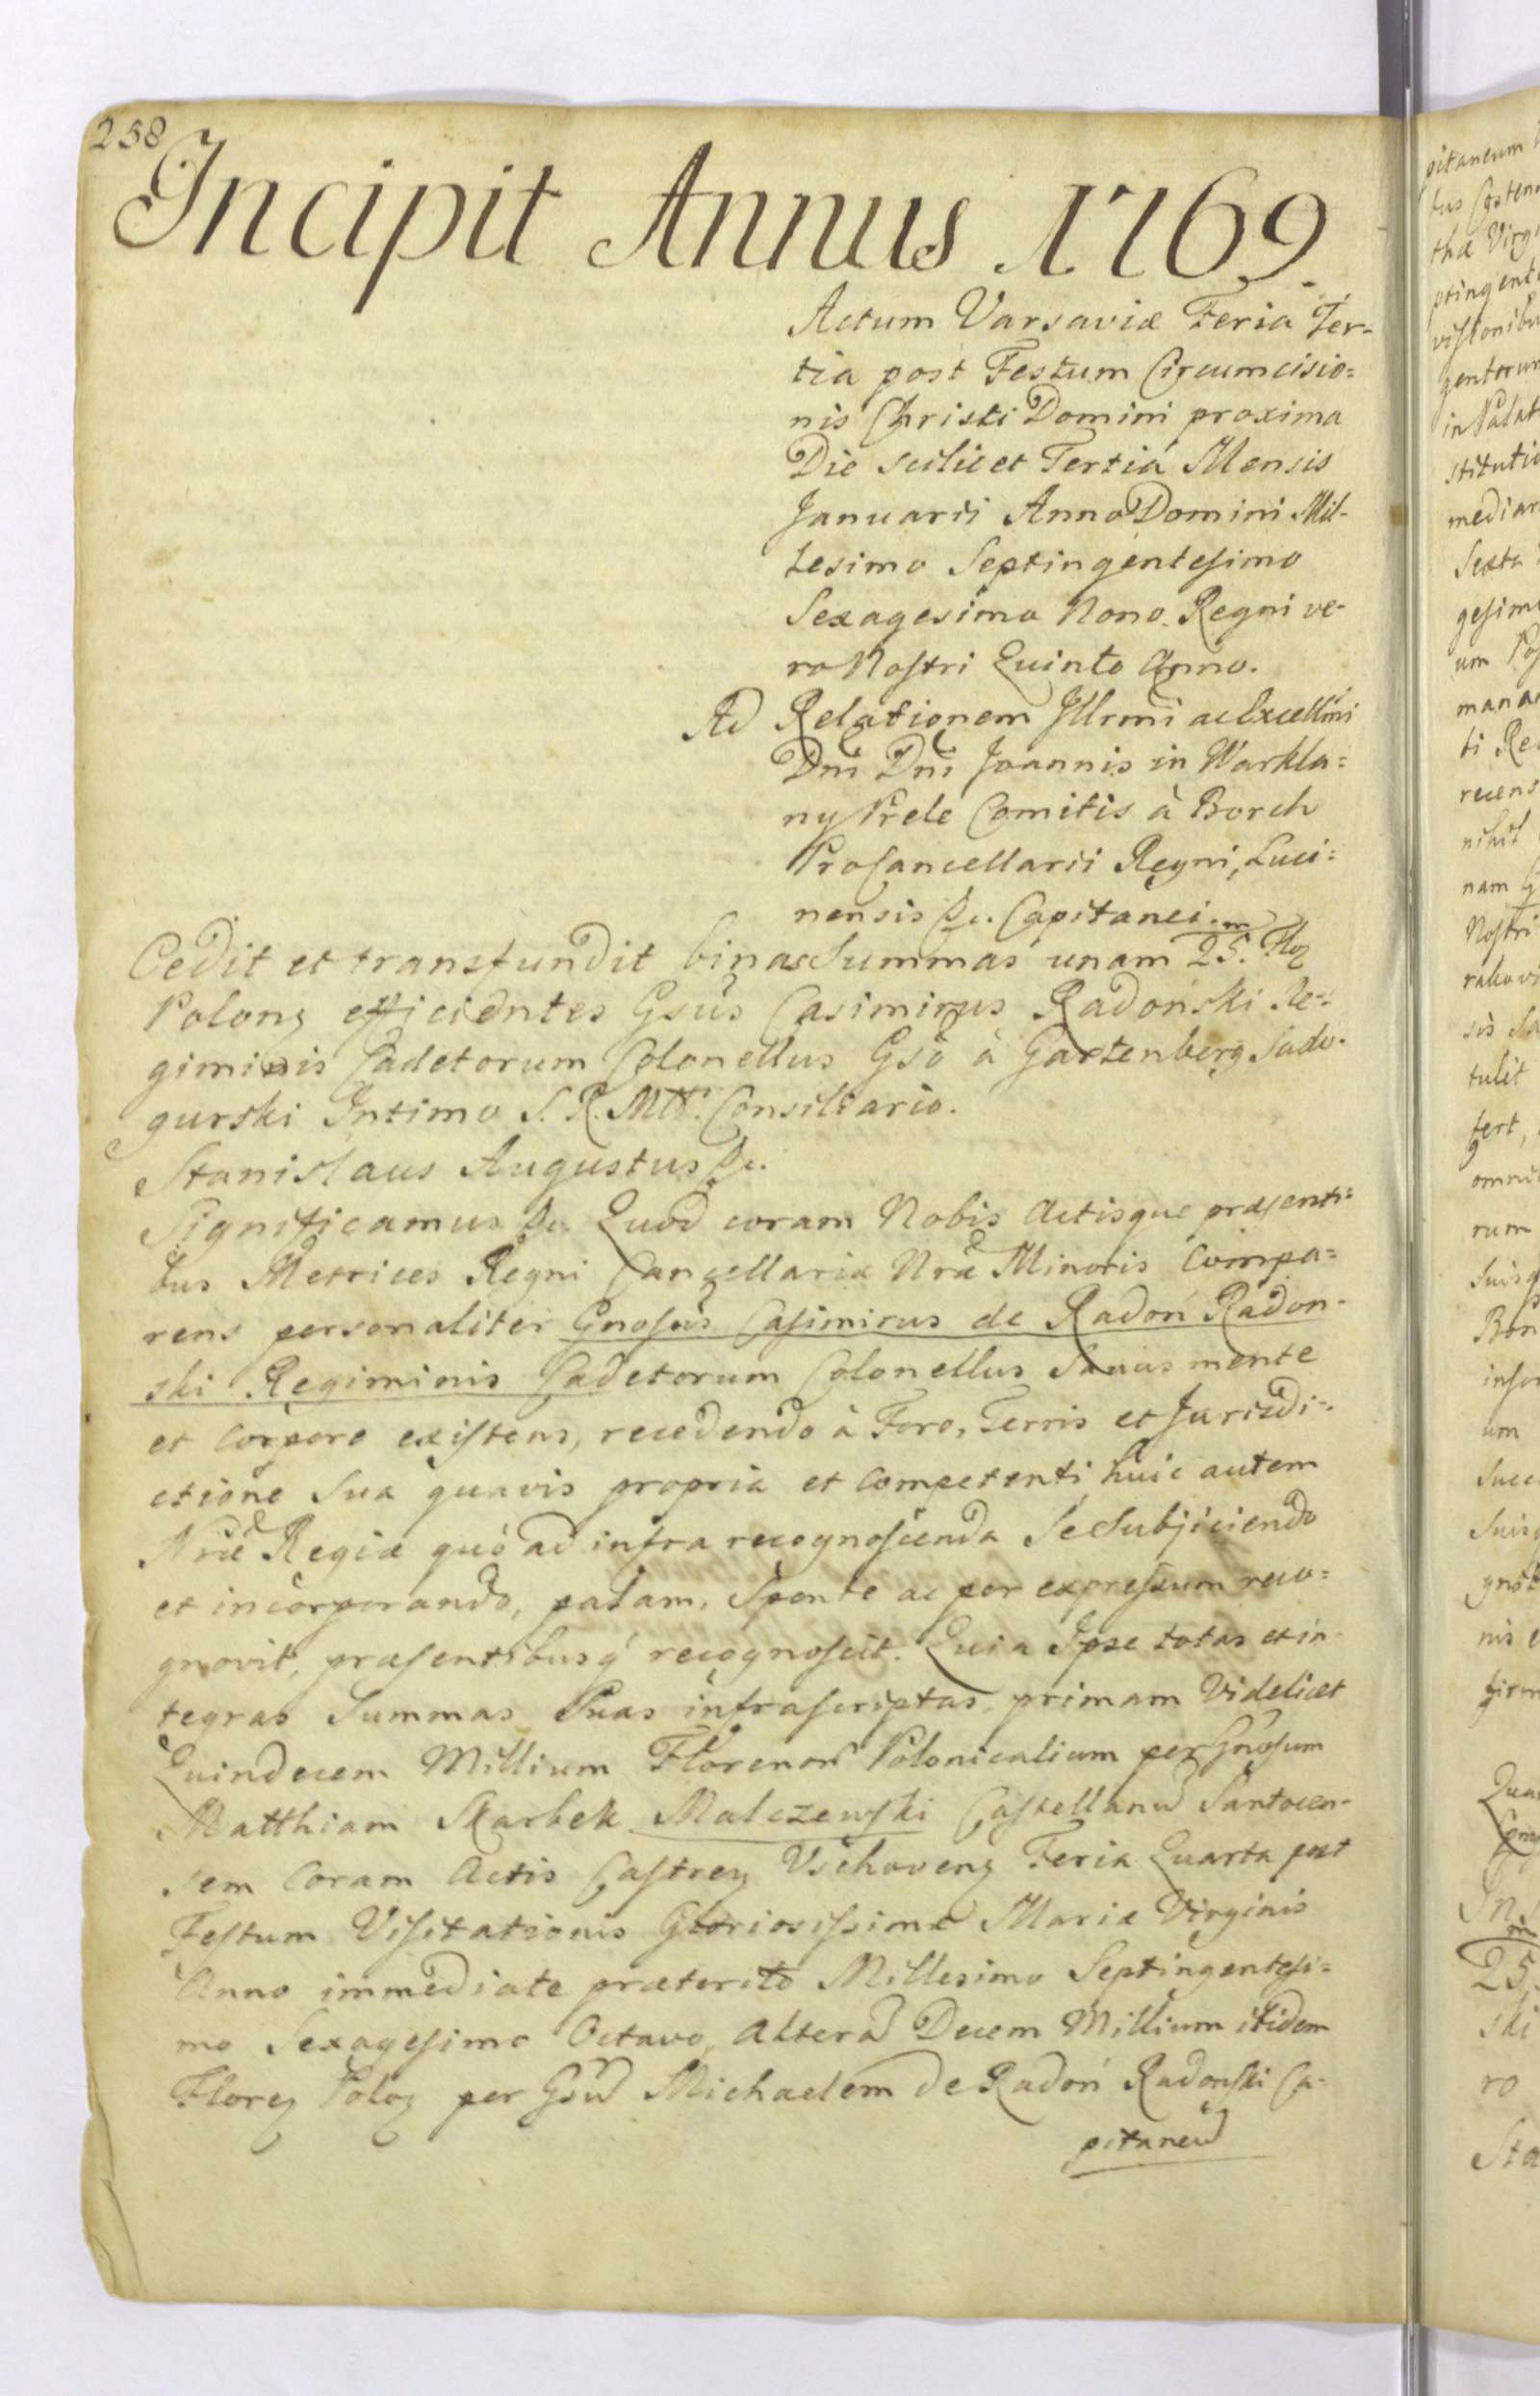 258
Incipit Annus 1769.
Actum Varsaviæ Feria Ter-
tia post Festum Circumcisio=
nis Christi Domini proxima
Die scilicet Tertiá Mensis
Januarii Anno Domini Mil-
lesimo Septingentesimo
Sexagesimo Nono. Regni ve-
ro Nostri Quinto Anno.
Ad Relationem Jllrmi ac Excellmi
Dni Dni Joannis in Warkla=
ny Prele Comitis à Borch
ProCancellarii Regni, Luci=
nensis &c. Capitanei.
Cedit et transfundit binas Summas unam 25.m Flor
Polonz efficientes Gsus Casimirus Radoński Re=
giminis Cadetorum Colonellus Gsò à Gartenberg Sado-
gurski Intimo S. R. Mtts. Consiliario.
Stanislaus Augustus &c.
Significamus &c. Quod coram Nobis Actisque præsenti=
bus Metrices Regni Cancellariæ Nræ Minoris Compa=
rens personaliter Gnosus Casimirus de Radoń Radon-
ski Regiminis Cadetorum Colonellus Sanus mente
et Corpore existens, recedendo à Foro, Terris et Jurisdi-
ctione Sua quavis propria et Competenti, huic autem
Nræ Regiæ quò ad infra recognoscenda Se Subjiciendo
et incorporando, palam, Sponte ac per expressum reco=
gnovit, præsentibusq́ recognoscit. Quia Ipse totas et in-
tegras Summas Suas infrascriptas, primam Videlicet
Quindecem Millium Florenor Polonicalium per Gnosum
Matthiam Skarbek Malczewski Castellanu Santocen-
sem Coram Actis Castrenz Vschovenz Feria Quarta post
Festum Visitationis Gloriosissimæ Mariæ Virginis
Anno immediate præterito Millesimo Septingentesi=
mo Sexagesimo Octavo, Altera Decem Millium itidem
Florez Poloz per Gsu Michaelem de Radoń Radonski Ca-
pitaneu